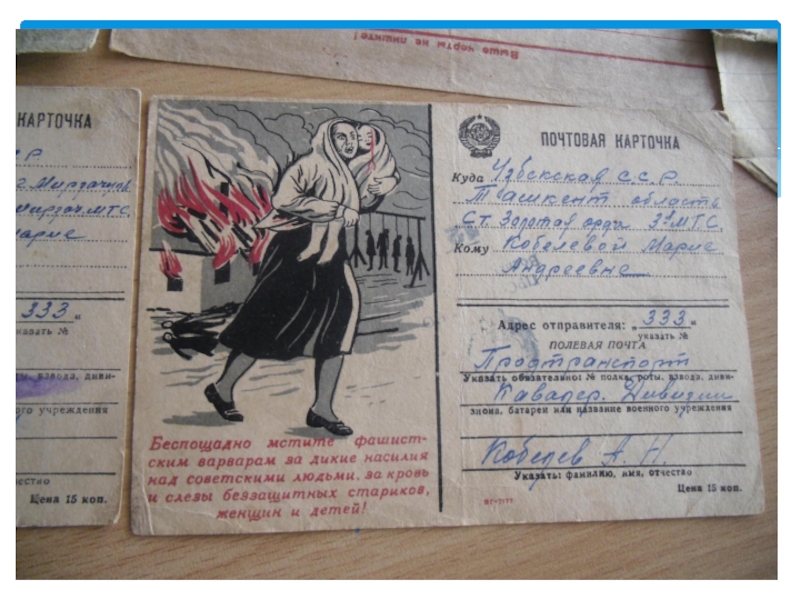 Выше черты не пишите!
КАРТОЧКА
Р
МТС.
333 "
указать №
взвода, диви-
го учреждения
чество
Цена 15 коп.
Беспощадно мстите фашист-
ским варварам за дикие насилия
над советскими людьми, за кровь
и слезы беззащитных стариков,
женщин и детей!
ПОЧТОВАЯ КАРТОЧКА
Куда Узбекская ССР.
Ташкент область
Ст. Золотая орда МТС.
Кому Кобелевой Марие
Андреевне
Адрес отправителя: „ 333 "
указать №
ПОЛЕВАЯ ПОЧТА
Продтранспорт
Указать обязательно: № полка, роты, взвода, диви-
Кавалер. Дивизии
зиона, батареи или название военного учреждения
Кобелев А. Н.
Указать: фамилию, имя, отчество
Цена 15 коп.